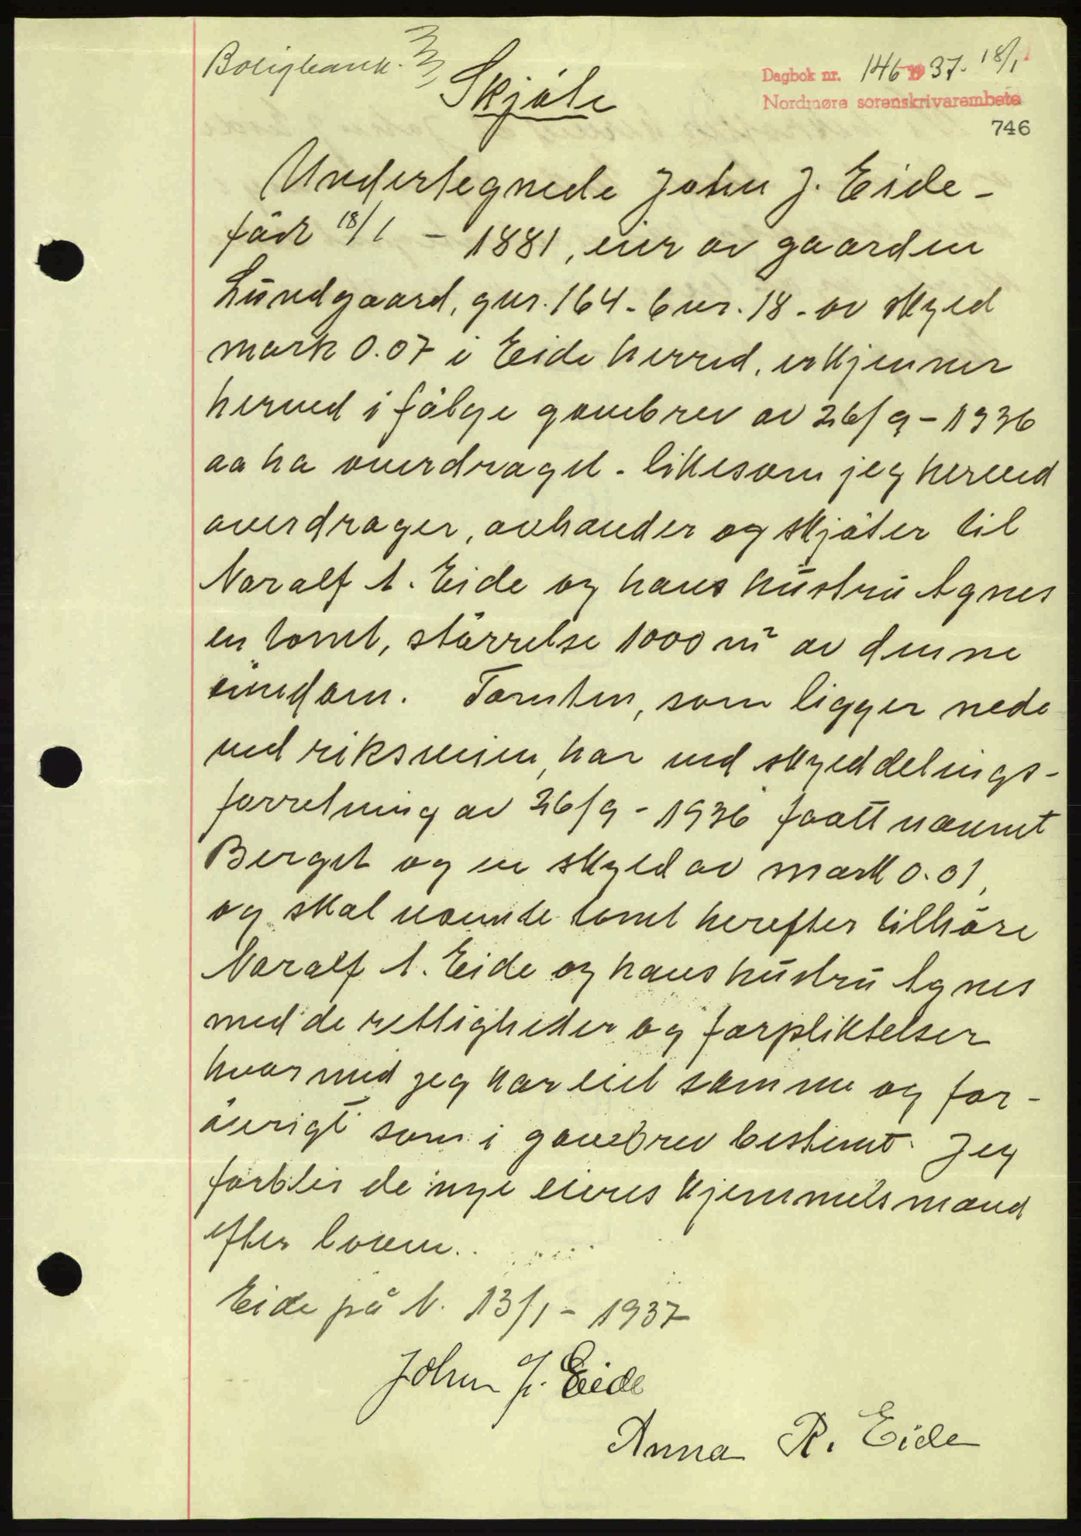 Boligbank. 33
Dagbok nr. 146 1937. 18/1
Nordmøre sorenskrivarembete
746
Skjöte
Undertegnede John J. Eide -
föd 18/1 - 1881, eier av gaarden
Lundgaard, gnr. 164 - bnr. 18 - av skyld
mark 0.07 i Eide herred, erkjenner
herved i fölge gavebrev av 26/9 - 1936
aa ha overdraget - likesom jeg herved
overdrager, avhænder og skjöter til
Noralf A. Eide og hans hustru Agnes
en tomt, störrelse 1000 m² av denne
eiendom. Tomten, som ligger nede
ved riksveien, har ved skylddelings-
forretning av 26/9 - 1936 faatt navnet
Berget og en skyld av mark 0.01,
og skal nævnte tomt herefter tilhöre
Noralf A. Eide og hans hustru Agnes
med de rettigheter og forpliktelser
hvormed jeg har eiet samme og for-
övrigt som i gavebrev bestemt. Jeg
forblir de nye eieres hjemmelsmand
efter loven.
Eide på N. 13/1 - 1937
John J. Eide
Anna R. Eide